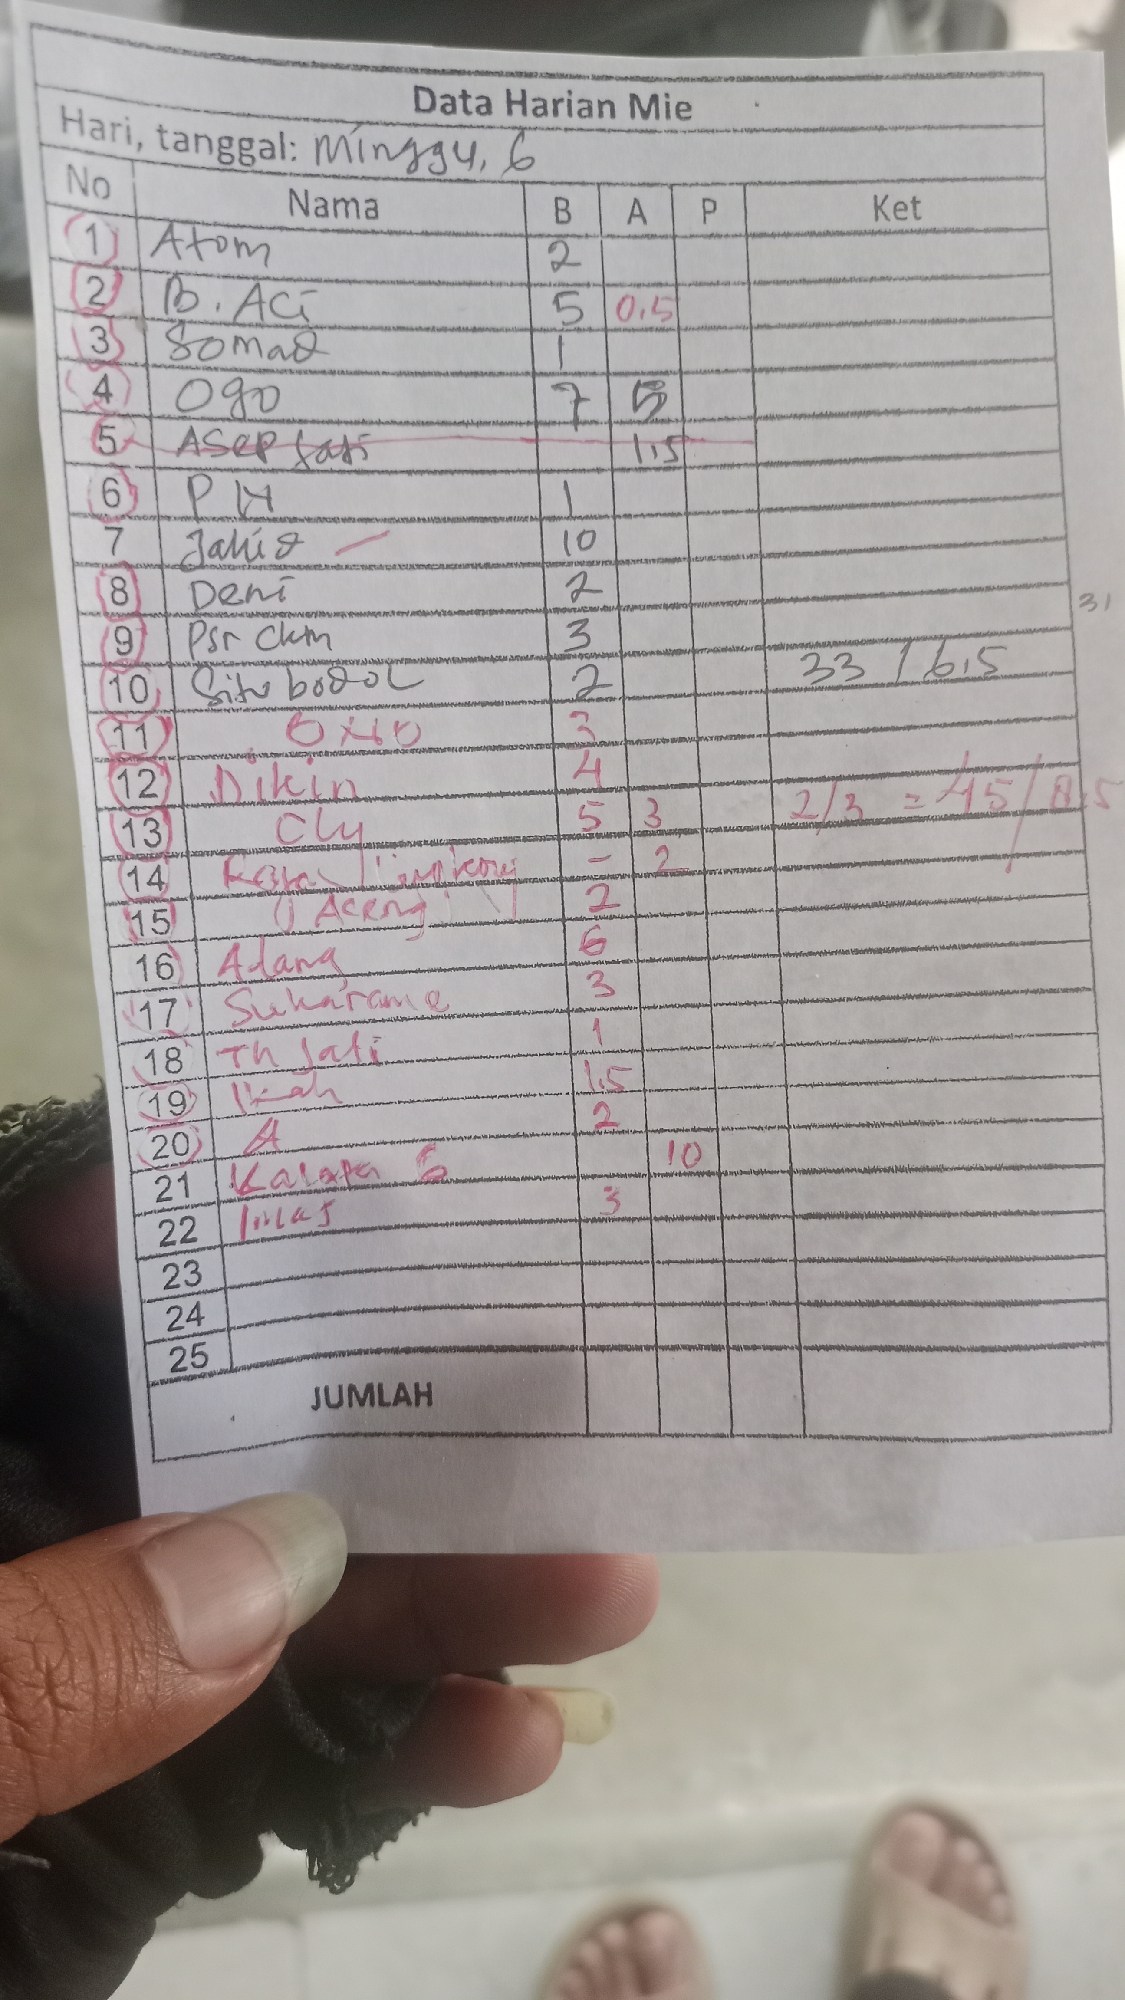 Data Harian Mie
Hari, tanggal: Minggu, 6
No Nama B A P Ket
1 Atom 2
2 B. ACi 5 0.5
3 Somad 1
4 Ogo 7 5
5 Asep Jati 1.5
6 PH 1
7 Jahid 10
8 Deni 2
9 Psr Ckm 3
31
10 Situ bodol 2 33 / 6.5
11 3
12 Dikin 4
13 Cly 5 3 2/3 = 45/8.5
14 - 2
15 Aceng 2
16 Adang 6
17 Sukarame 3
18 Th Jati 1
19 Ikah 1.5
20 A 2
21 Kalapa 6 10
22 3
23
24
25
JUMLAH